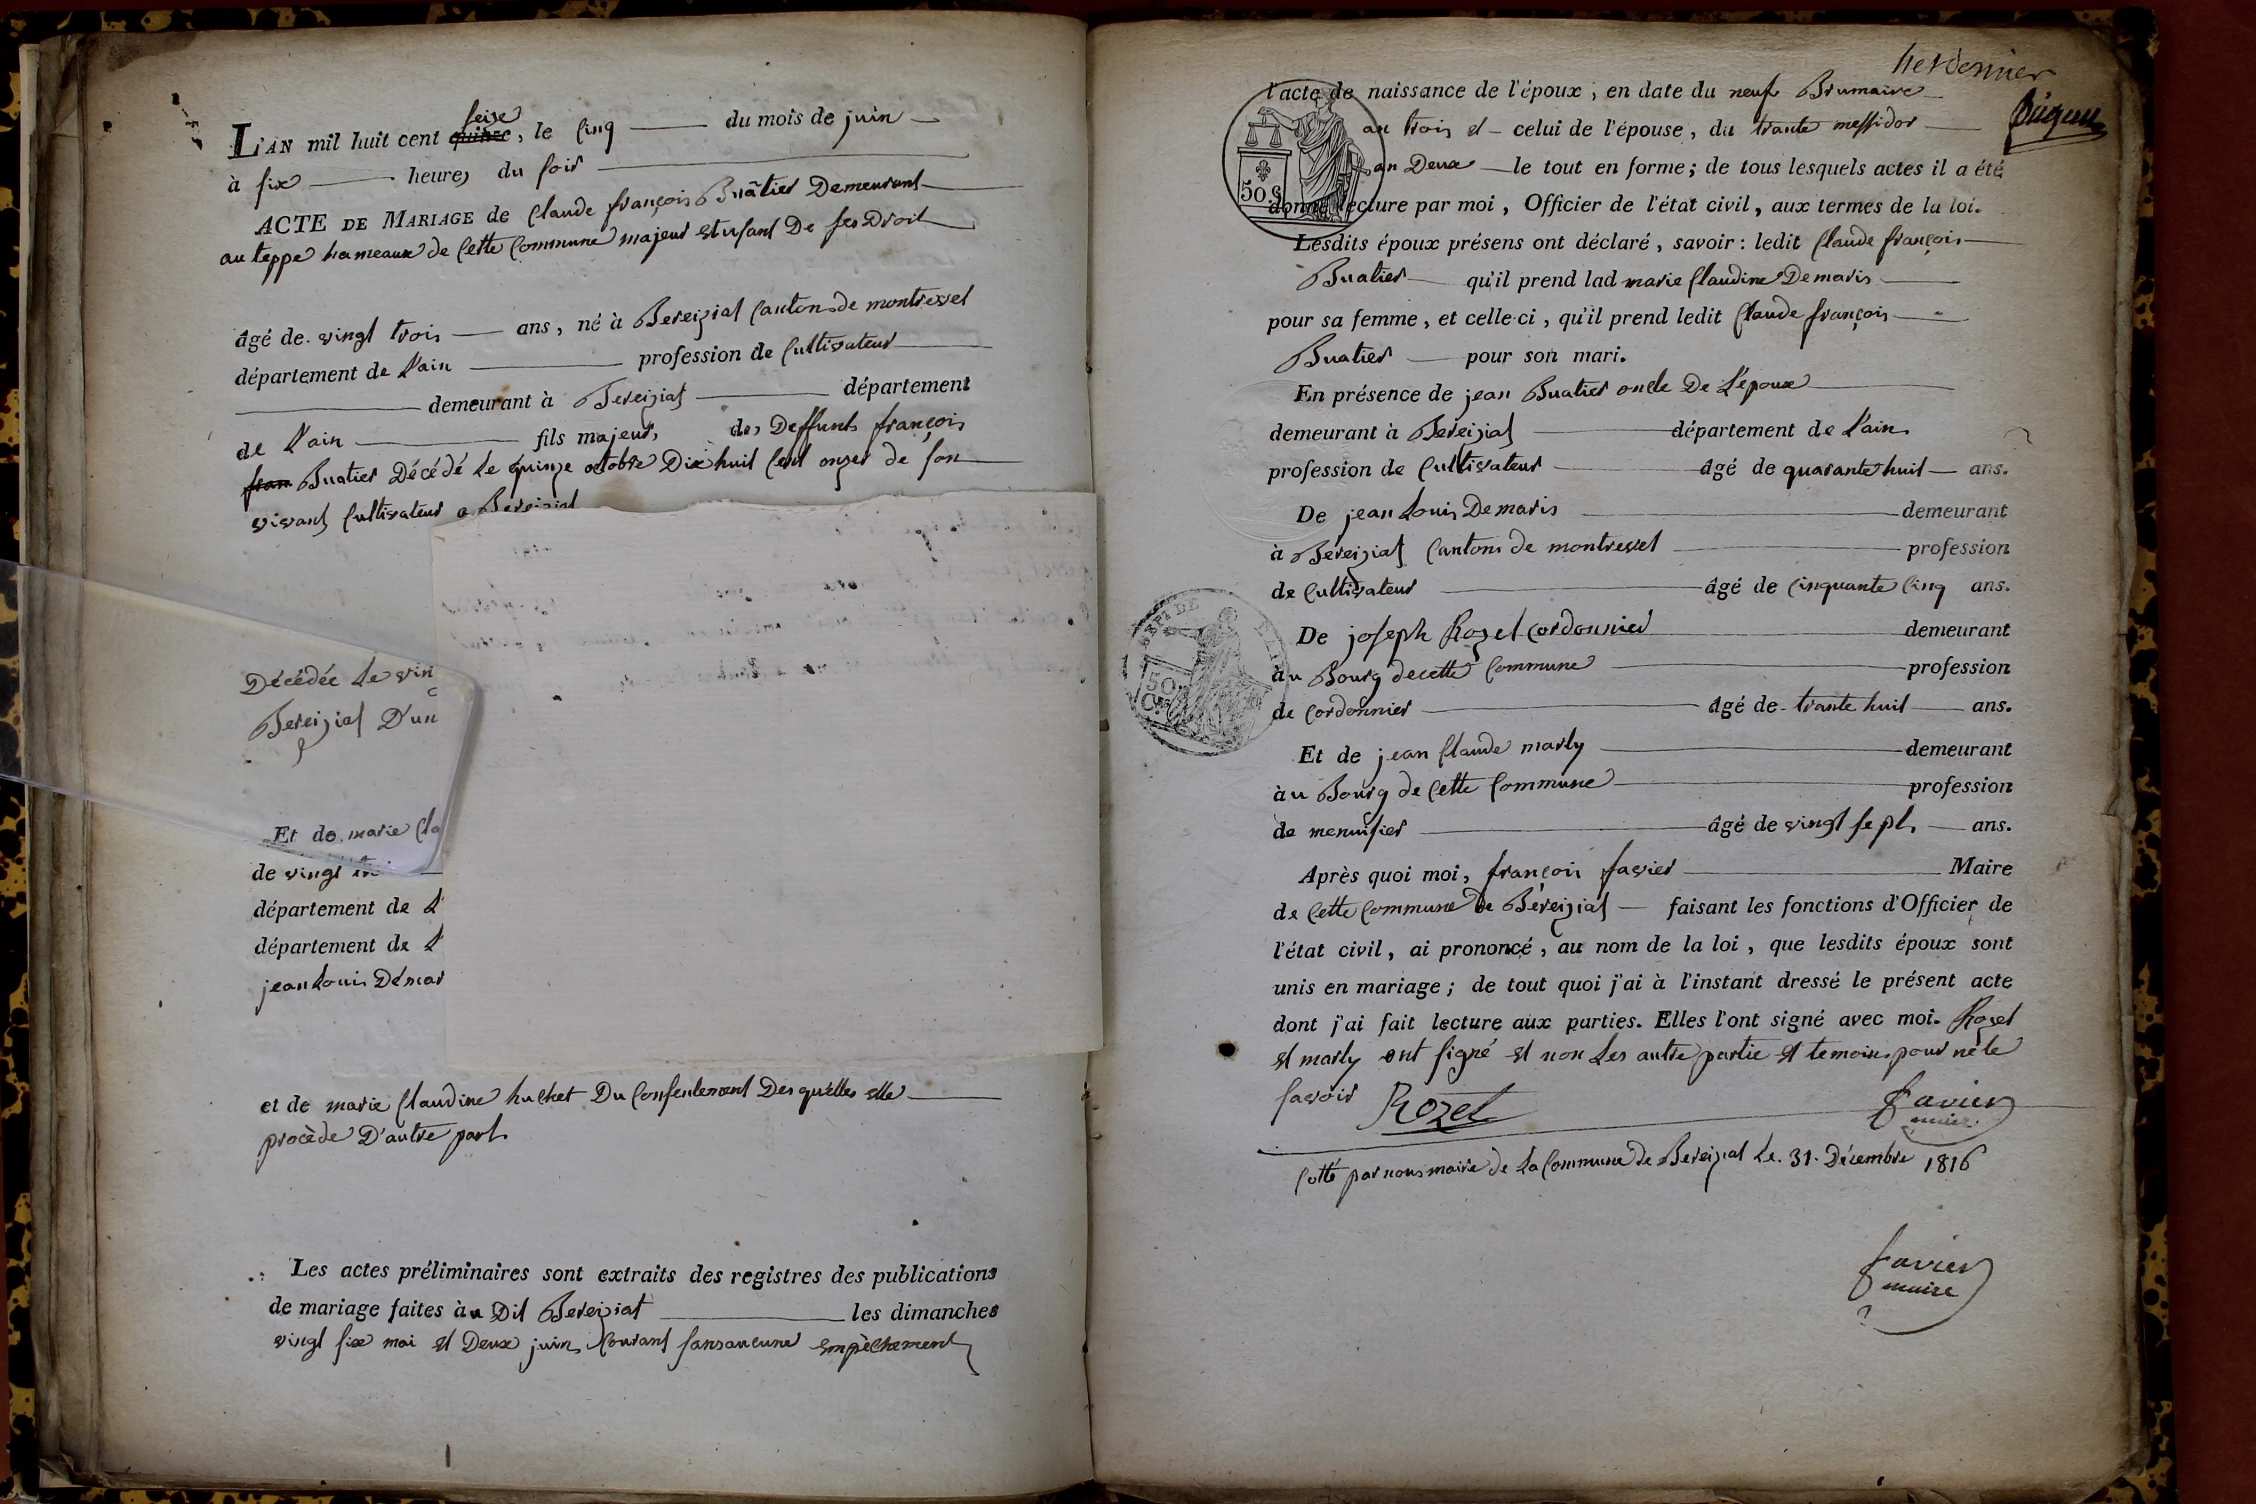 L'AN mil huit cent quinze seize, le cinq du mois de juin
à six heures du soir
ACTE DE MARIAGE de Claude françois Buâtier Demeurant
au teppe hameaux de Cette Commune majeur et usant De ses Droit
âgé de vingt trois ans, né à Bereiziat Canton de montrevel
département de L'ain profession de Cultivateur
demeurant à Bereiziat département
de L'ain fils majeur, des Deffunts françois
fran Buatier Décédé Le quinze octobre Dix huit Cent onze de son
vivant Cultivateur a Bereiziat
Décédée Le vin
Bereiziat D'un
Et de marie Cla
de vingt
département de L'
département de L'
jean Louis Démar
et de marie Claudine huchet Du Consentement Des quelles elle
procède D'autre part
Les actes préliminaires sont extraits des registres des publications
de mariage faites àu Dit Bereiziat les dimanches
vingt six mai et Deux juin Courant sans aucune empèchement
het dernier
l'acte de naissance de l'époux, en date du neuf Brumaire
an trois et celui de l'épouse, du trante messidor
an Deux le tout en forme; de tous lesquels actes il a été
50 C
donné lecture par moi, Officier de l'état civil, aux termes de la loi.
Lesdits époux présens ont déclaré, savoir: ledit Claude françois
Buatier qu'il prend lad marie Claudine Demaris
pour sa femme, et celle-ci, qu'il prend ledit Claude françois
Buatier pour son mari.
En présence de jean Buatier oncle De L'époux
demeurant à Bereiziat département de L'ain
profession de Cultivateur âgé de quarante huit ans.
De jean Louis Demaris demeurant
à Bereiziat Canton de montrevel profession
de Cultivateur âgé de Cinquante Cinq ans.
De joseph Rozet Cordonnier demeurant
àu Bourg de cette Commune profession
50
Cmes
de Cordonnier âgé de trante huit ans.
Et de jean Claude marly demeurant
àu Bourg de Cette Commune profession
de menuisier âgé de vingt sept ans.
Après quoi moi, françois favier Maire
de Cette Commune de Béreiziat faisant les fonctions d'Officier de
l'état civil, ai prononcé, au nom de la loi, que lesdits époux sont
unis en mariage; de tout quoi j'ai à l'instant dressé le présent acte
dont j'ai fait lecture aux parties. Elles l'ont signé avec moi. Rozet
et marly ont signé et non Les autre partie et temoins pour ne le
savoir Rozet favier
maire
Cotté par nous maire de La Commune de Bereiziat Le 31 Décembre 1816
favier
maire